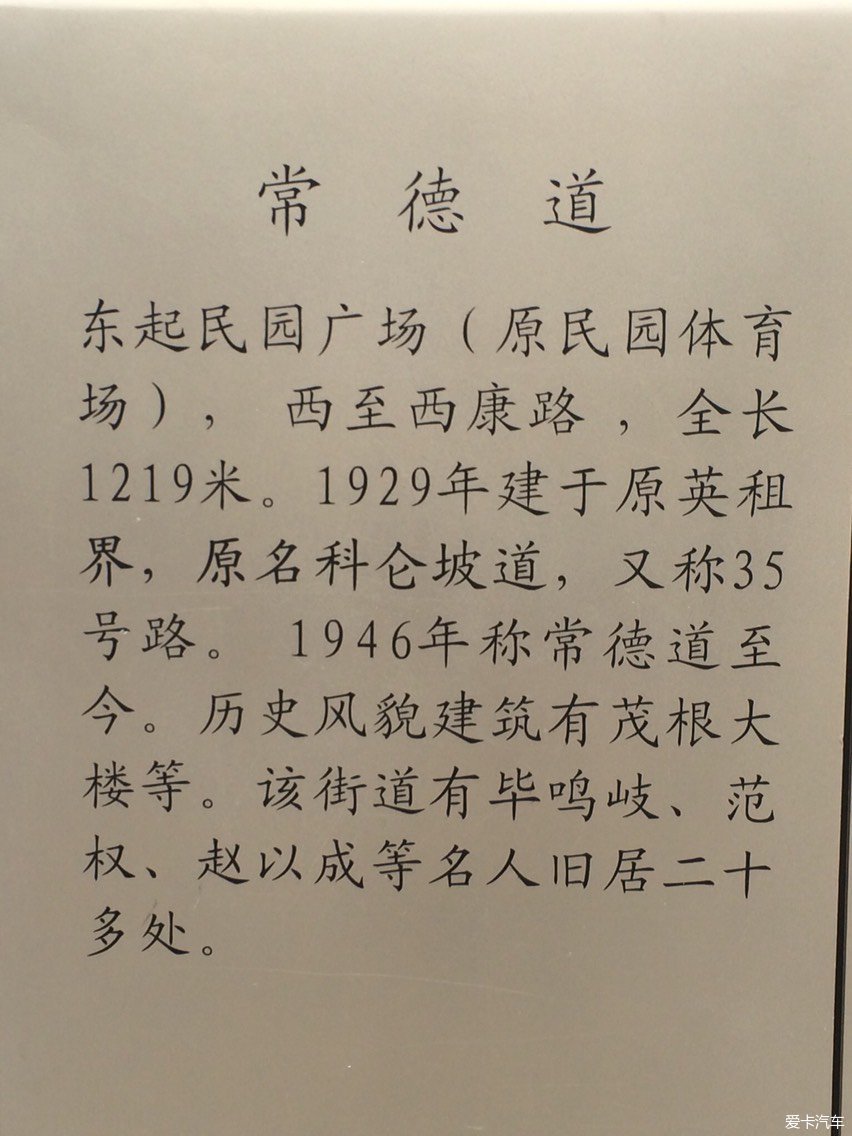 常 德 道
东起民园广场（原民园体育
场），西至西康路，全长
1219米。1929年建于原英租
界，原名科仑坡道，又称35
号路。 1946年称常德道至
今。历史风貌建筑有茂根大
楼等。该街道有毕鸣岐、范
权、赵以成等名人旧居二十
多处。
爱卡汽车